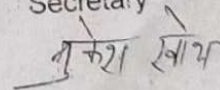 Secretary
मुकेश